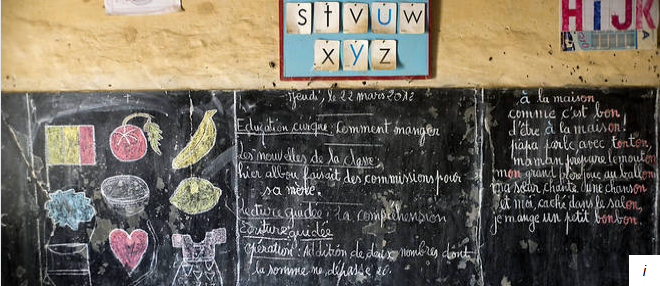 s t v u w
x y z
H I J K
Jeudi, le 22 mars 2012
Education civique: Comment manger
Les nouvelles de la classe:
hier albou faisait des commissions pour
sa mère.
Lecture guidée: la compréhension
Ecriture guidée
Opération: Addition de deux nombres dont
la somme ne dépasse
à la maison
comme c'est bon
d'être à la maison!
papa parle avec tonton,
maman prépare le mouton
mon grand père joue au ballon
ma sœur chante une chanson
et moi, caché dans le salon,
je mange un petit bonbon.
i